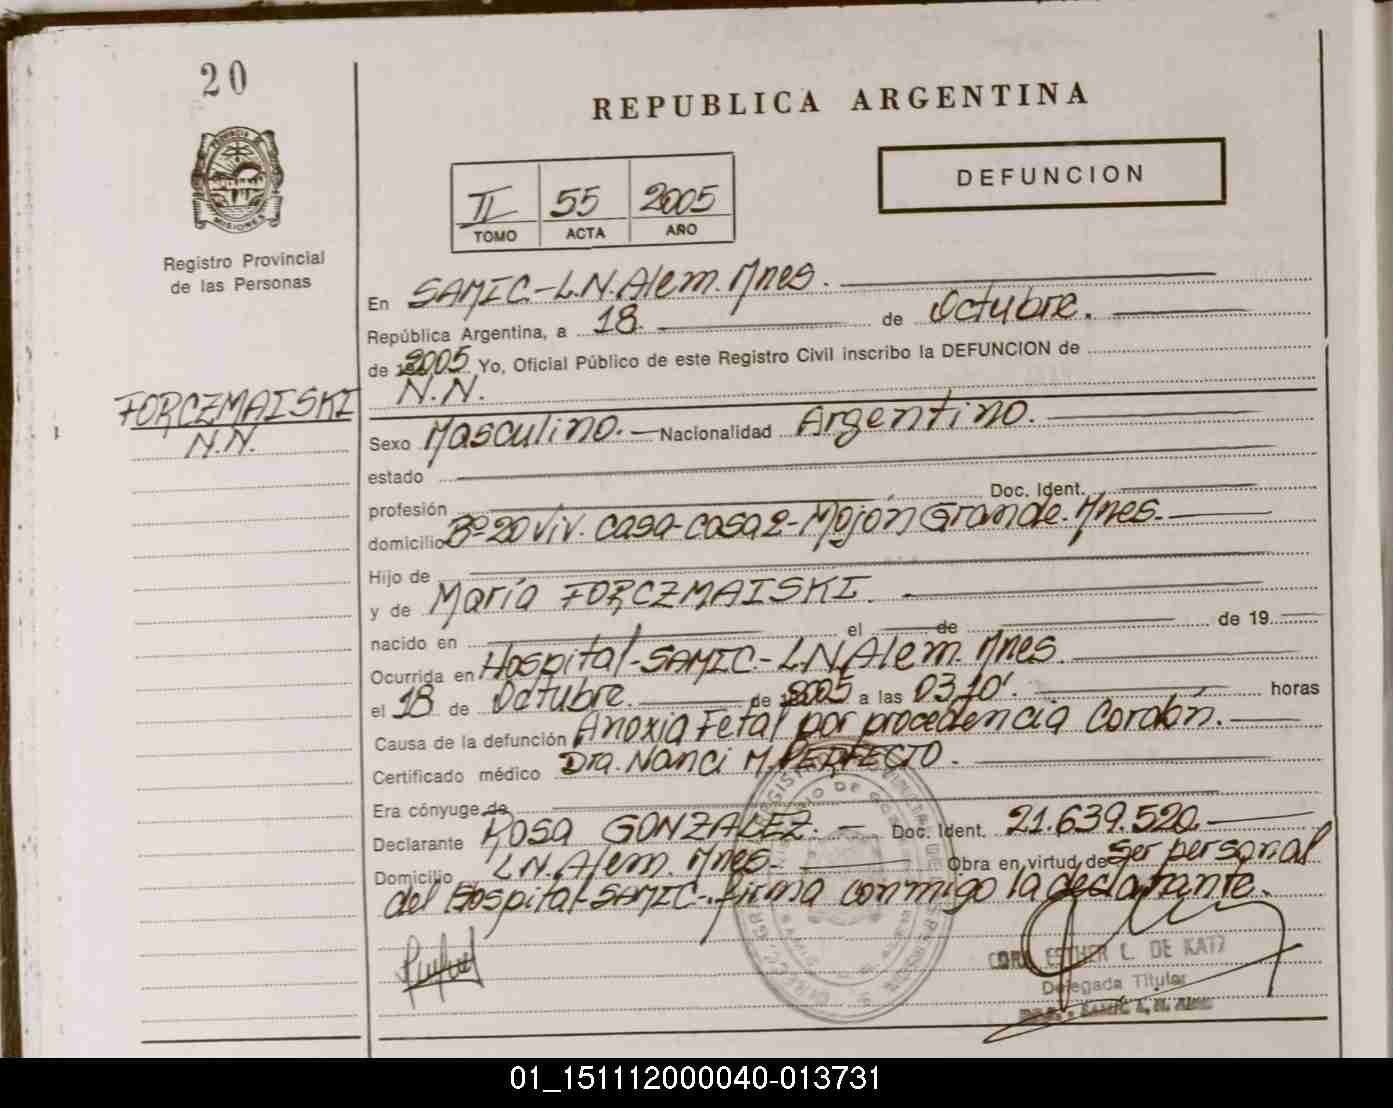 20
REPUBLICA ARGENTINA
DEFUNCION
II 55 2005
TOMO ACTA AÑO
PROVINCIA DE MISIONES
Registro Provincial
de las Personas
En SAMIC-L.N.Alem.Mnes.
República Argentina, a 18. de Octubre.
de 2005 Yo, Oficial Público de este Registro Civil inscribo la DEFUNCION de
N.N.
FORCZMAISKI
N.N.
Sexo Masculino.- Nacionalidad Argentino.
estado
profesión Doc. Ident.
domicilio Bº 20 Viv. casa-casa 2-Mojón Grande.Mnes.
Hijo de
y de María FORCZMAISKI.
nacido en el de de 19
Ocurrida en Hospital-SAMIC-L.N.Alem.Mnes.
el 18 de Octubre. de 2005 a las 03,10'. horas
Causa de la defunción Anoxia Fetal por procedencia Cordón.
Certificado médico Dra. Nanci M.PERFECTO.
Era cónyuge de
Declarante Rosa GONZALEZ.- Doc. Ident. 21.639.520
Domicilio L.N.Alem.Mnes. Obra en virtud de Ser personal
del Hospital-SAMIC-.firma conmigo la declarante.
ESTHER L. DE KATZ
Delegada Titular
01_151112000040-013731